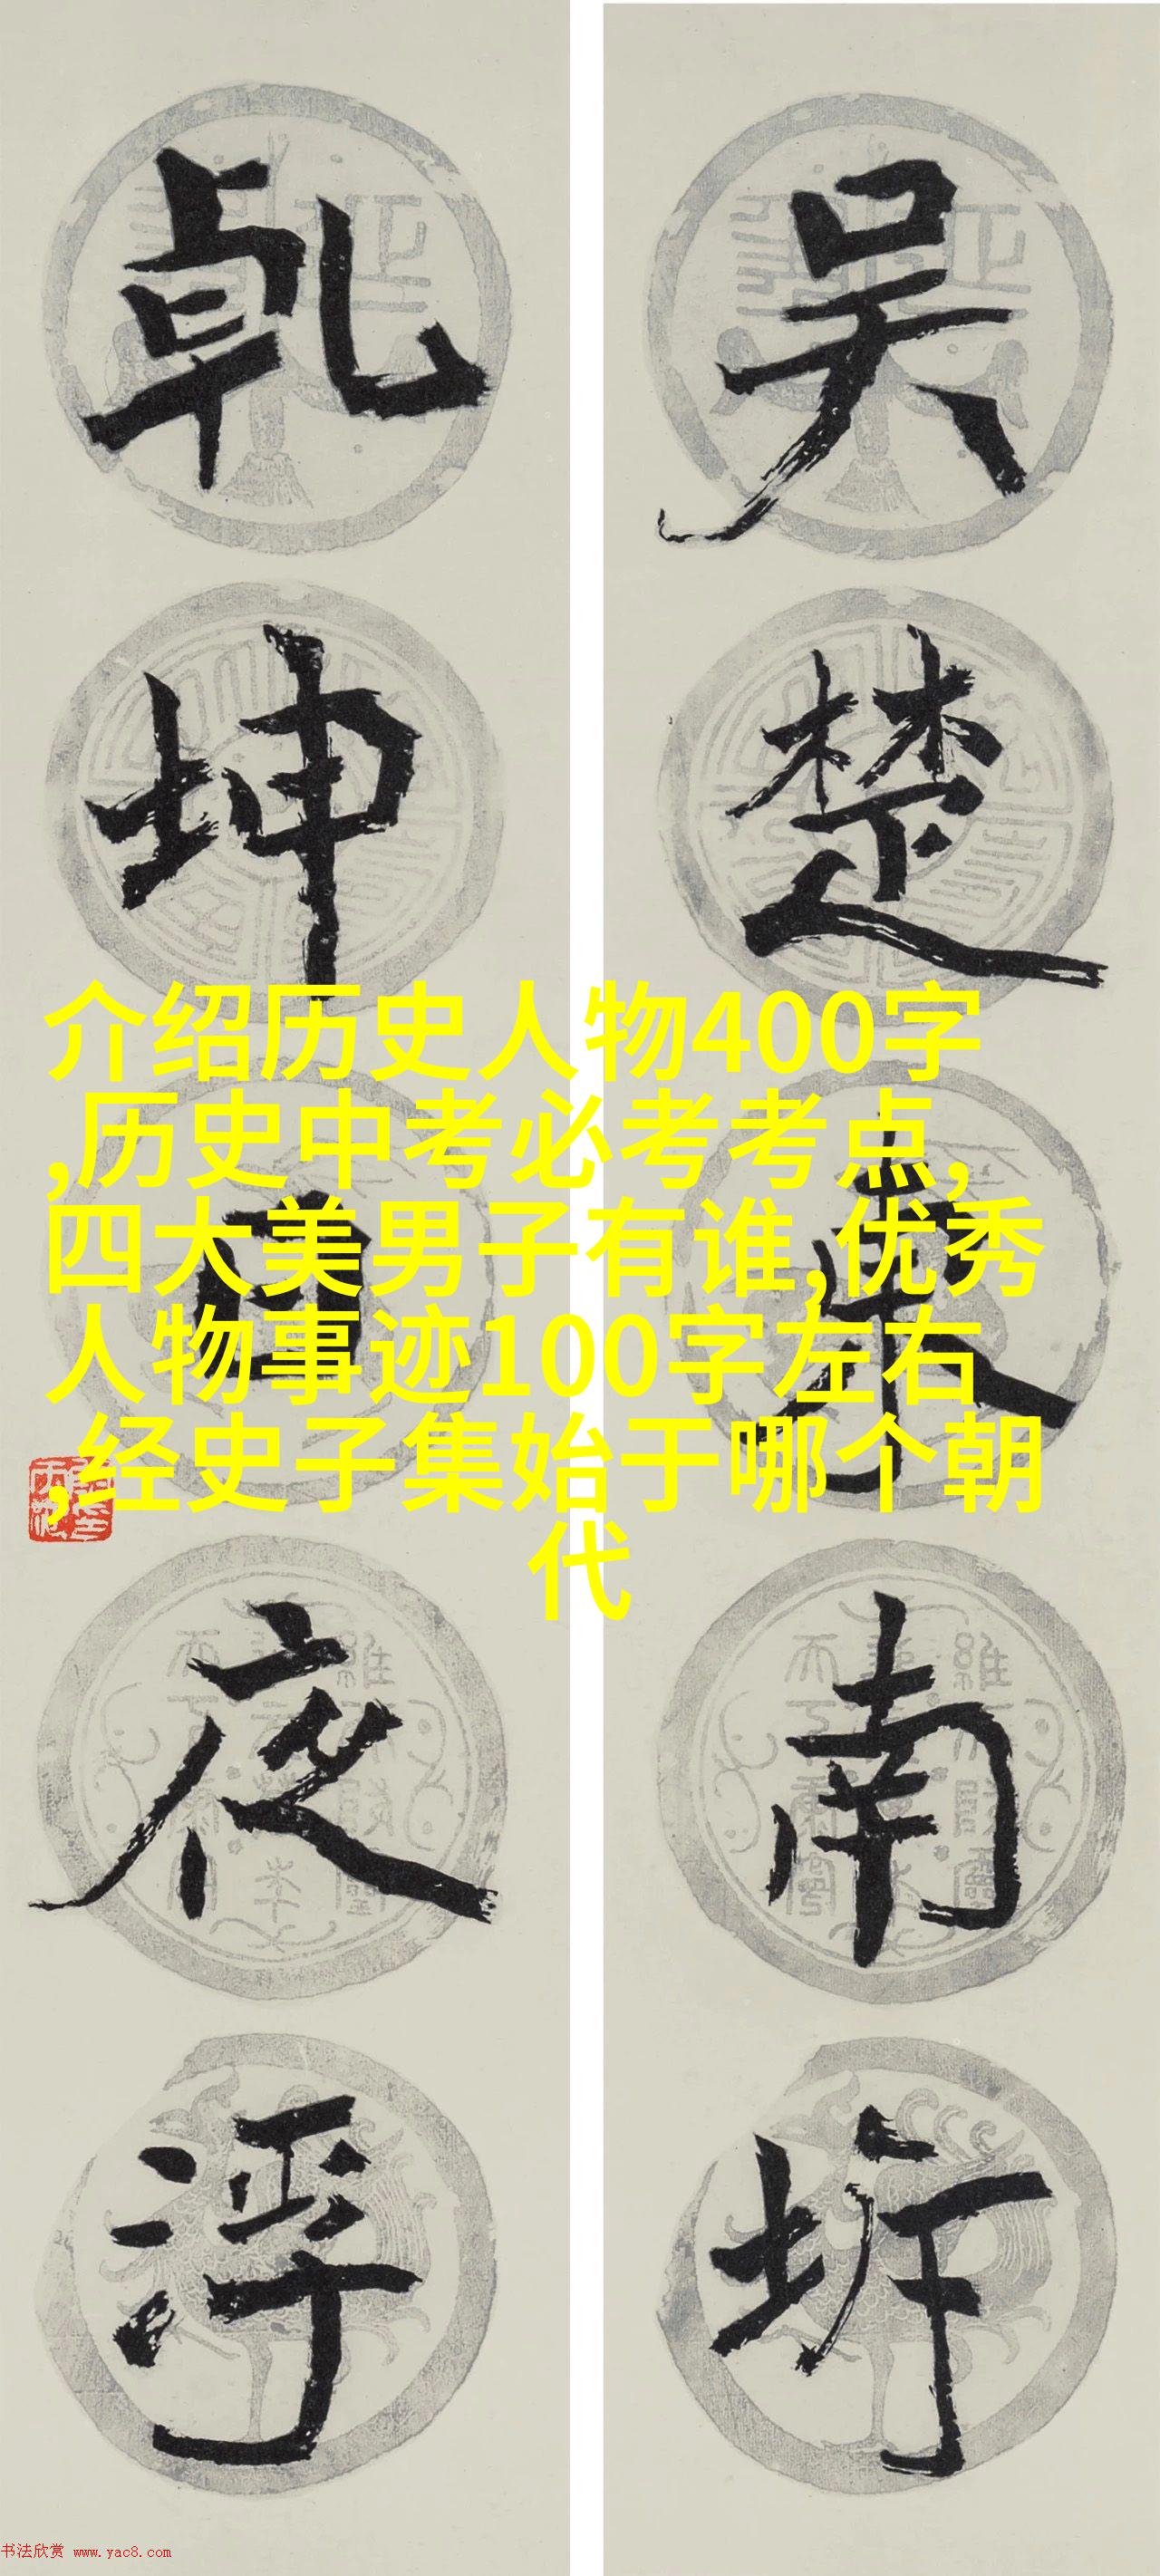 吴楚东南坼
乾坤日夜浮
介绍历史人物400字
,历史中考必考考点,
四大美男子有谁,优秀
人物事迹100字左右
,经史子集始于哪个朝
代
书法欣赏 www.yac8.com